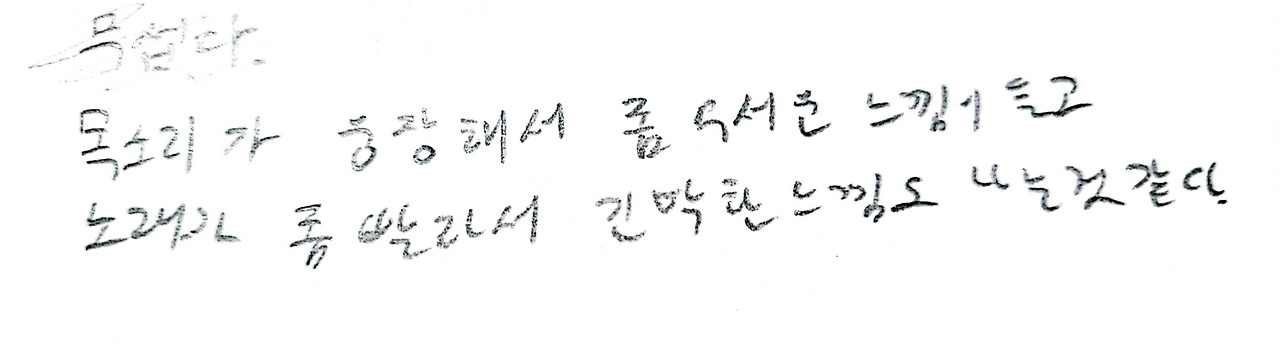 무섭다.
목소리가 웅장해서 좀 무서운 느낌이 들고
노래가 좀 빨라서 긴박한 느낌도 나는것 같다.